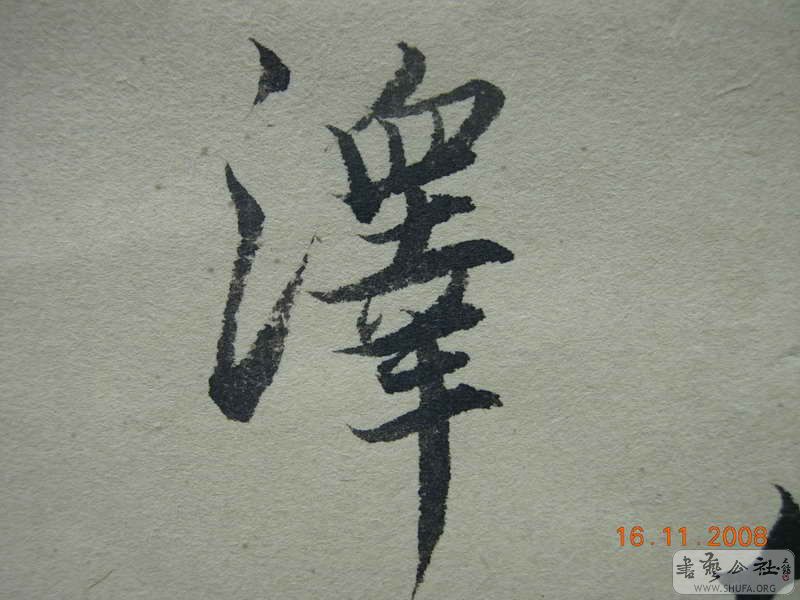 澤
16.11.2008
書藝公社
WWW.SHUFA.ORG